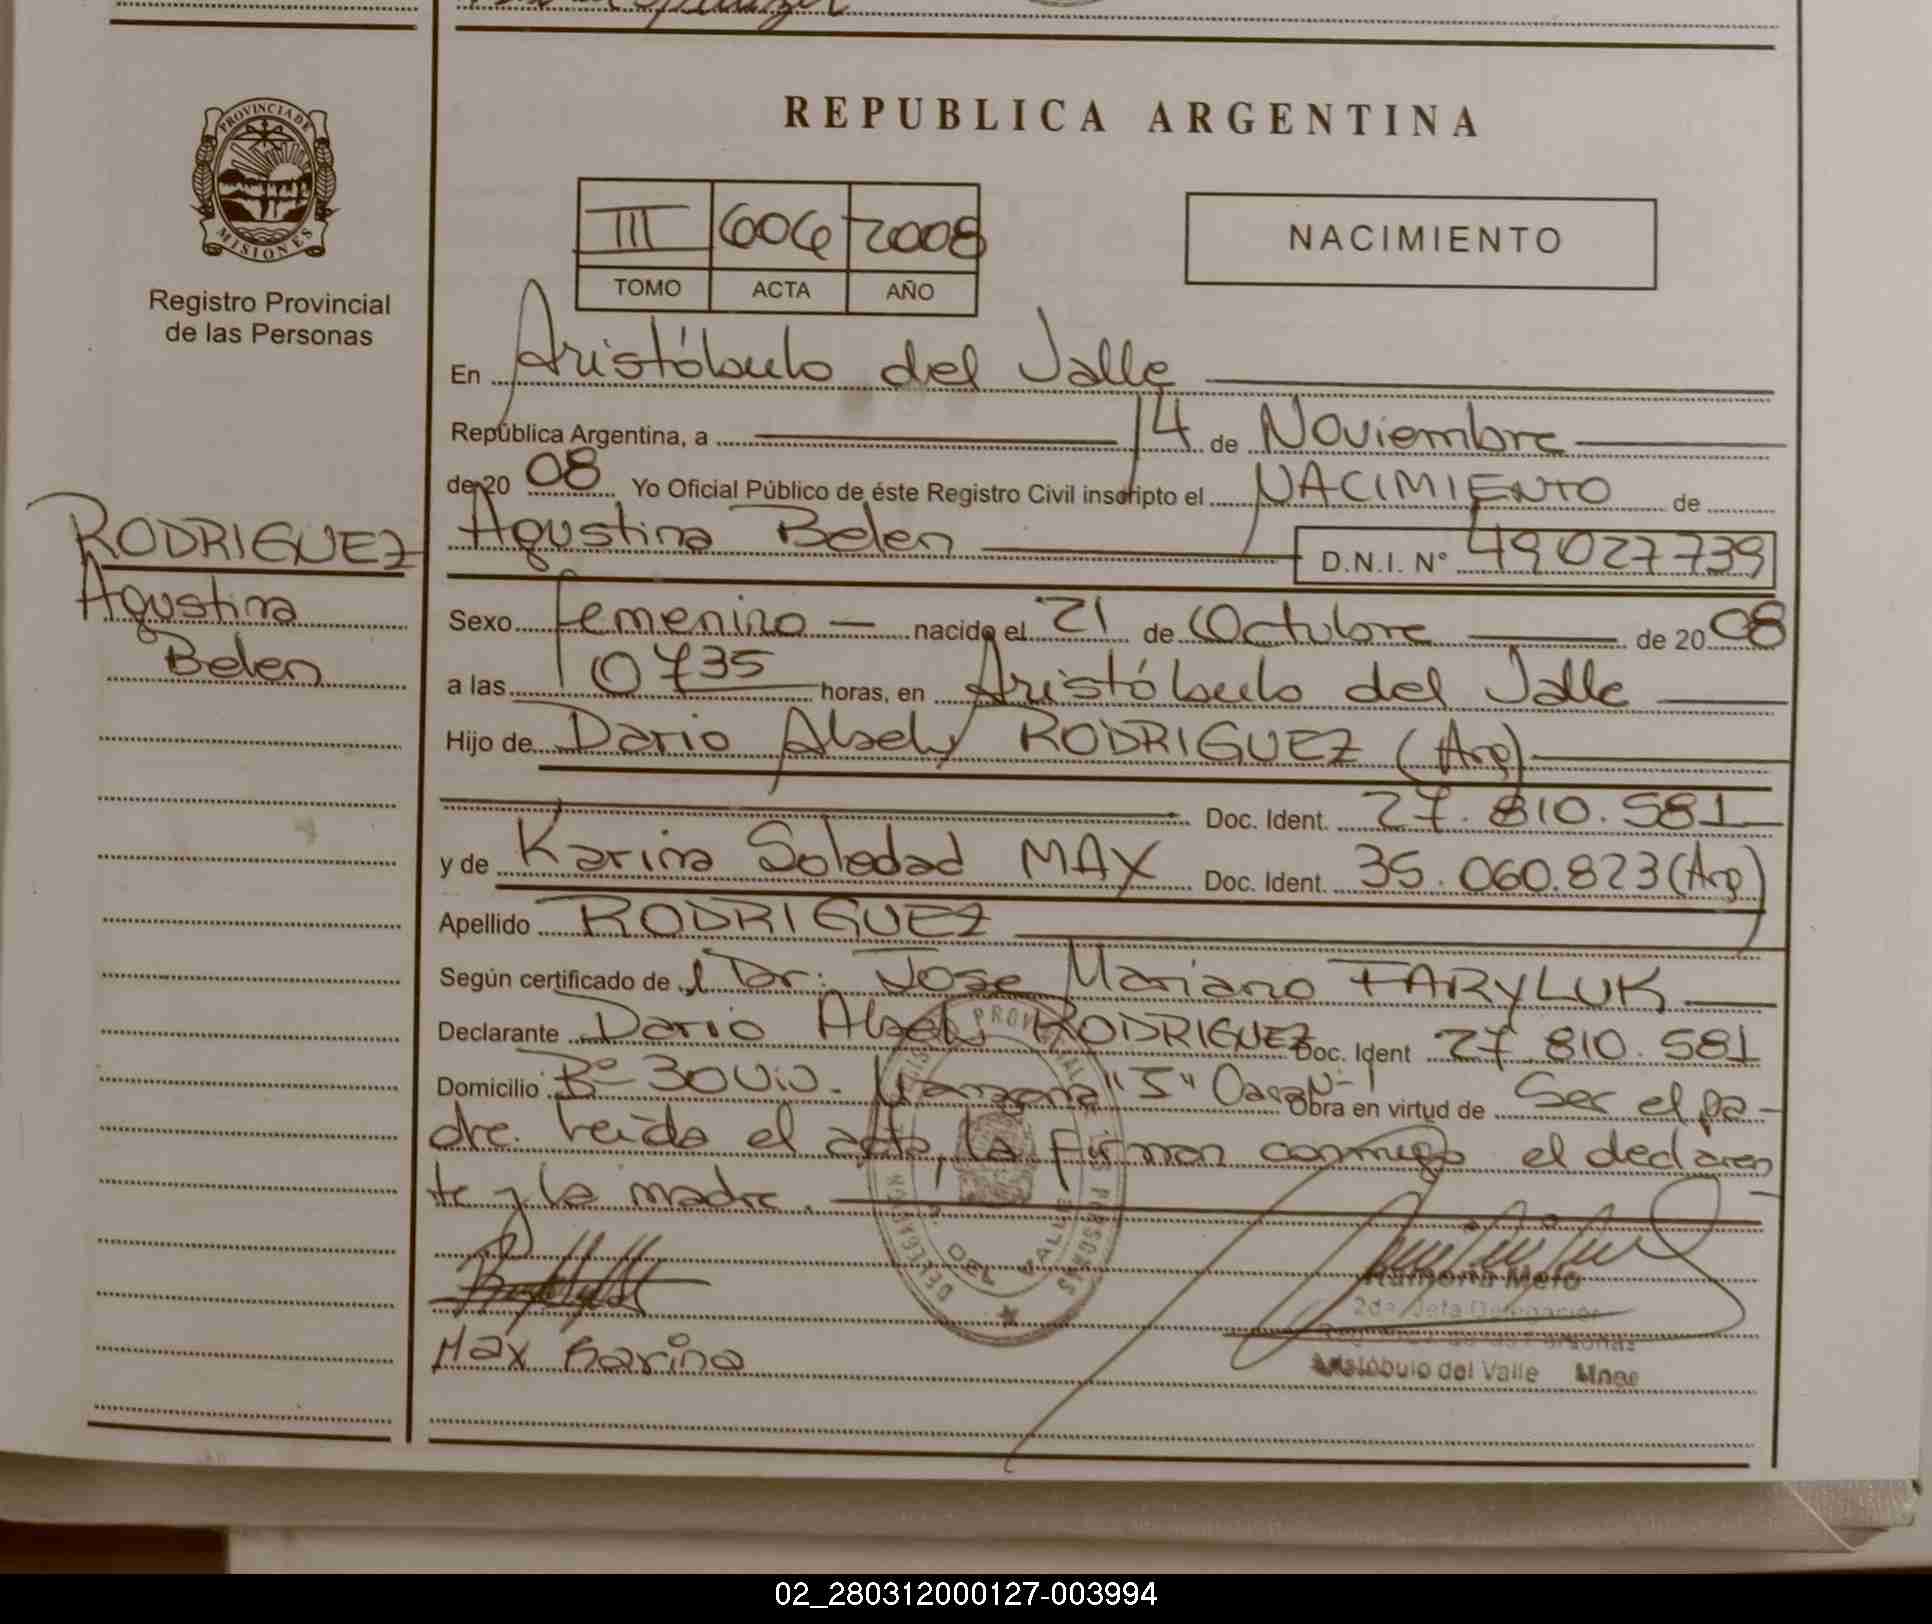 PROVINCIA DE
MISIONES
Registro Provincial
de las Personas
RODRIGUEZ
Agustina
Belen
REPUBLICA ARGENTINA
III 606 2008
TOMO ACTA AÑO
NACIMIENTO
En Aristóbulo del Valle
República Argentina, a 14 de Noviembre
de 20 08 Yo Oficial Público de éste Registro Civil inscripto el NACIMIENTO de
Agustina Belen D.N.I. N° 49027739
Sexo femenino nacido el 21 de Octubre de 20 08
a las 0735 horas, en Aristóbulo del Valle
Hijo de Dario RODRIGUEZ (Arg)
Doc. Ident. 27.810.581
y de Karina Soledad MAX Doc. Ident. 35.060.823 (Arg)
Apellido RODRIGUEZ
Según certificado de l Dr. Jose Mariano FARYLUK
Declarante Dario RODRIGUEZ Doc. Ident 27.810.581
Domicilio B° 30 Viv. Manzana "5" Casa N° 1 Obra en virtud de Ser el pa-
dre. Leida el acta, la firman conmigo el declaran
te y la madre.
Max Karina
2da Jefa Delegación
Aristóbulo del Valle Mnes
02_280312000127-003994